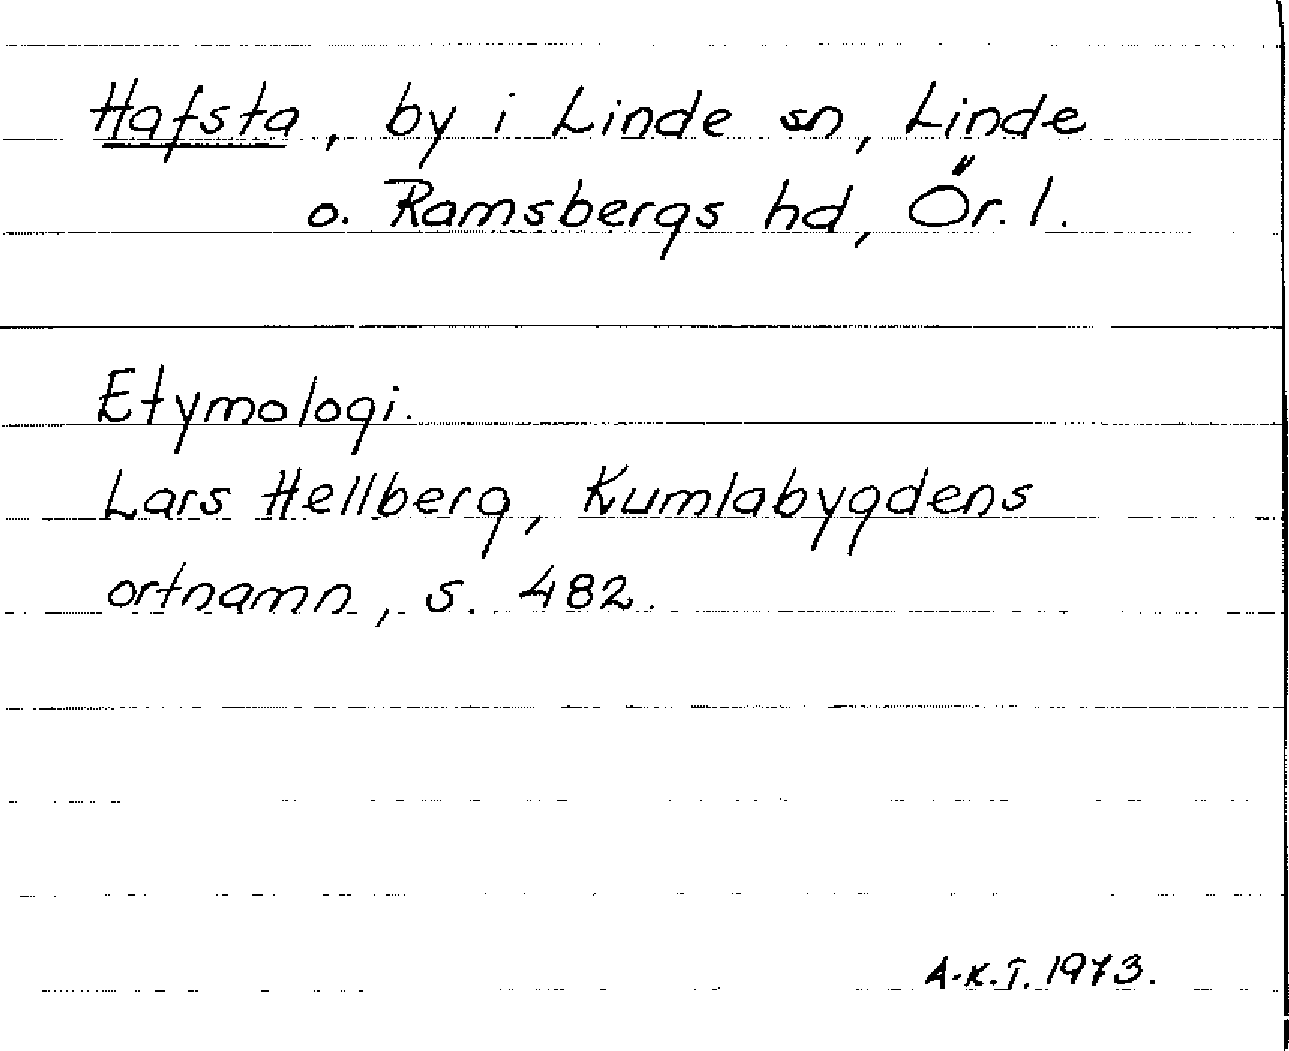 Hafsta, by i Linde sn, Linde
o. Ramsbergs hd, Ör. l.
Etymologi.
Lars Hellberg, Kumlabygdens
ortnamn, s. 482.
A-K.T. 1973.